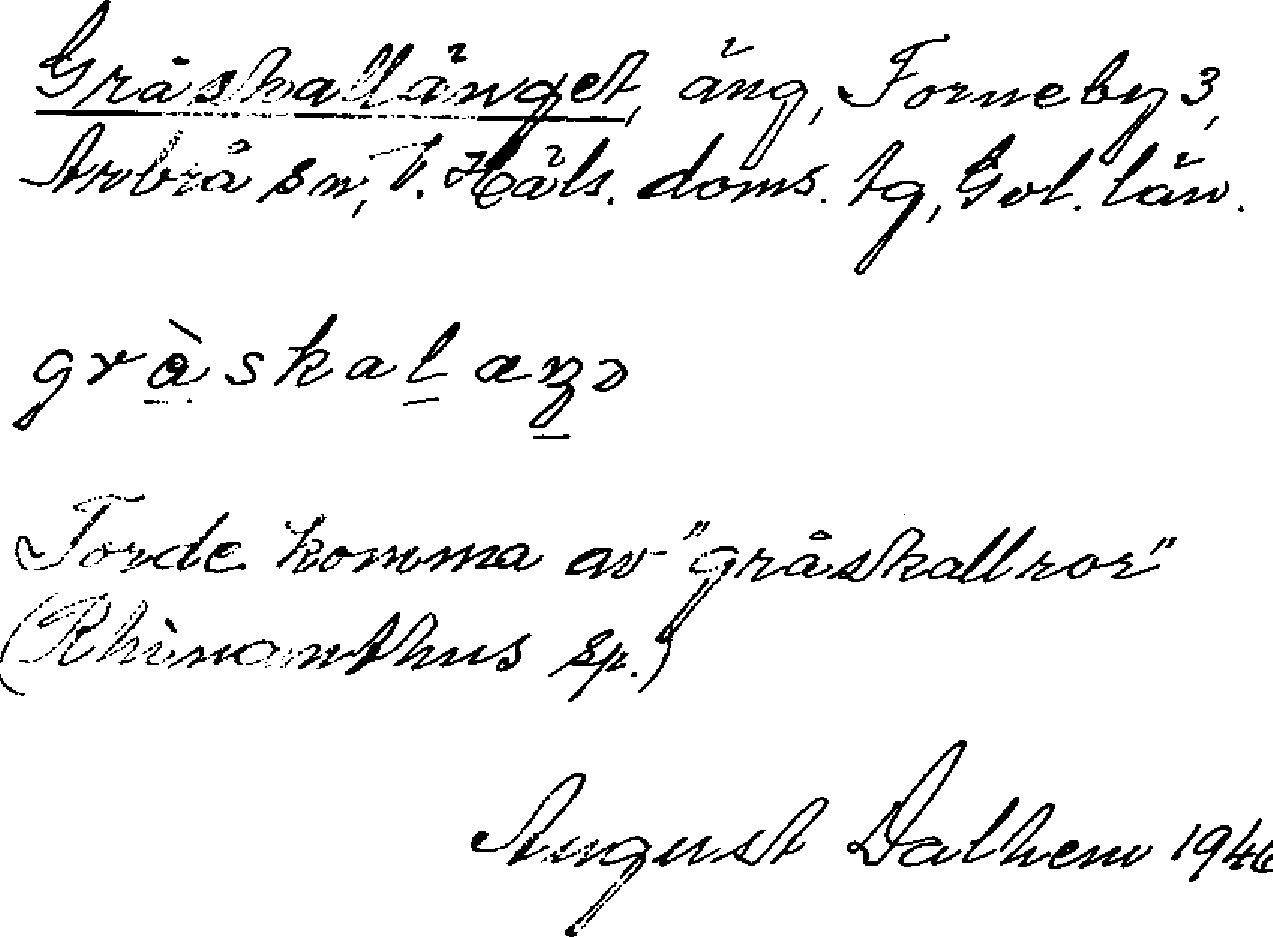 Gråskallänget, äng, Forneby 3,
Arbrå sn, V. Häls. doms. tg, Gvl. län.
gràskalaŋə
Torde komma av "gråskallror"
(Rhinanthus sp.)
August Dalhem 1946